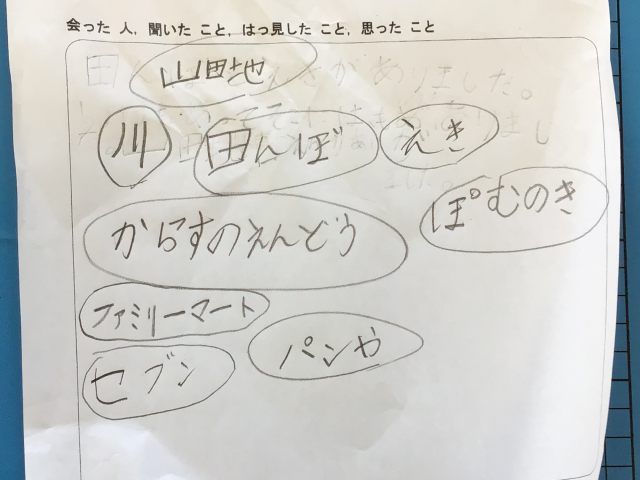 会った 人, 聞いた こと, はっ見した こと, 思った こと
山田地
川 田んぼ えき
ぽむのき
からすのえんどう
ファミリーマート
パンや
セブン